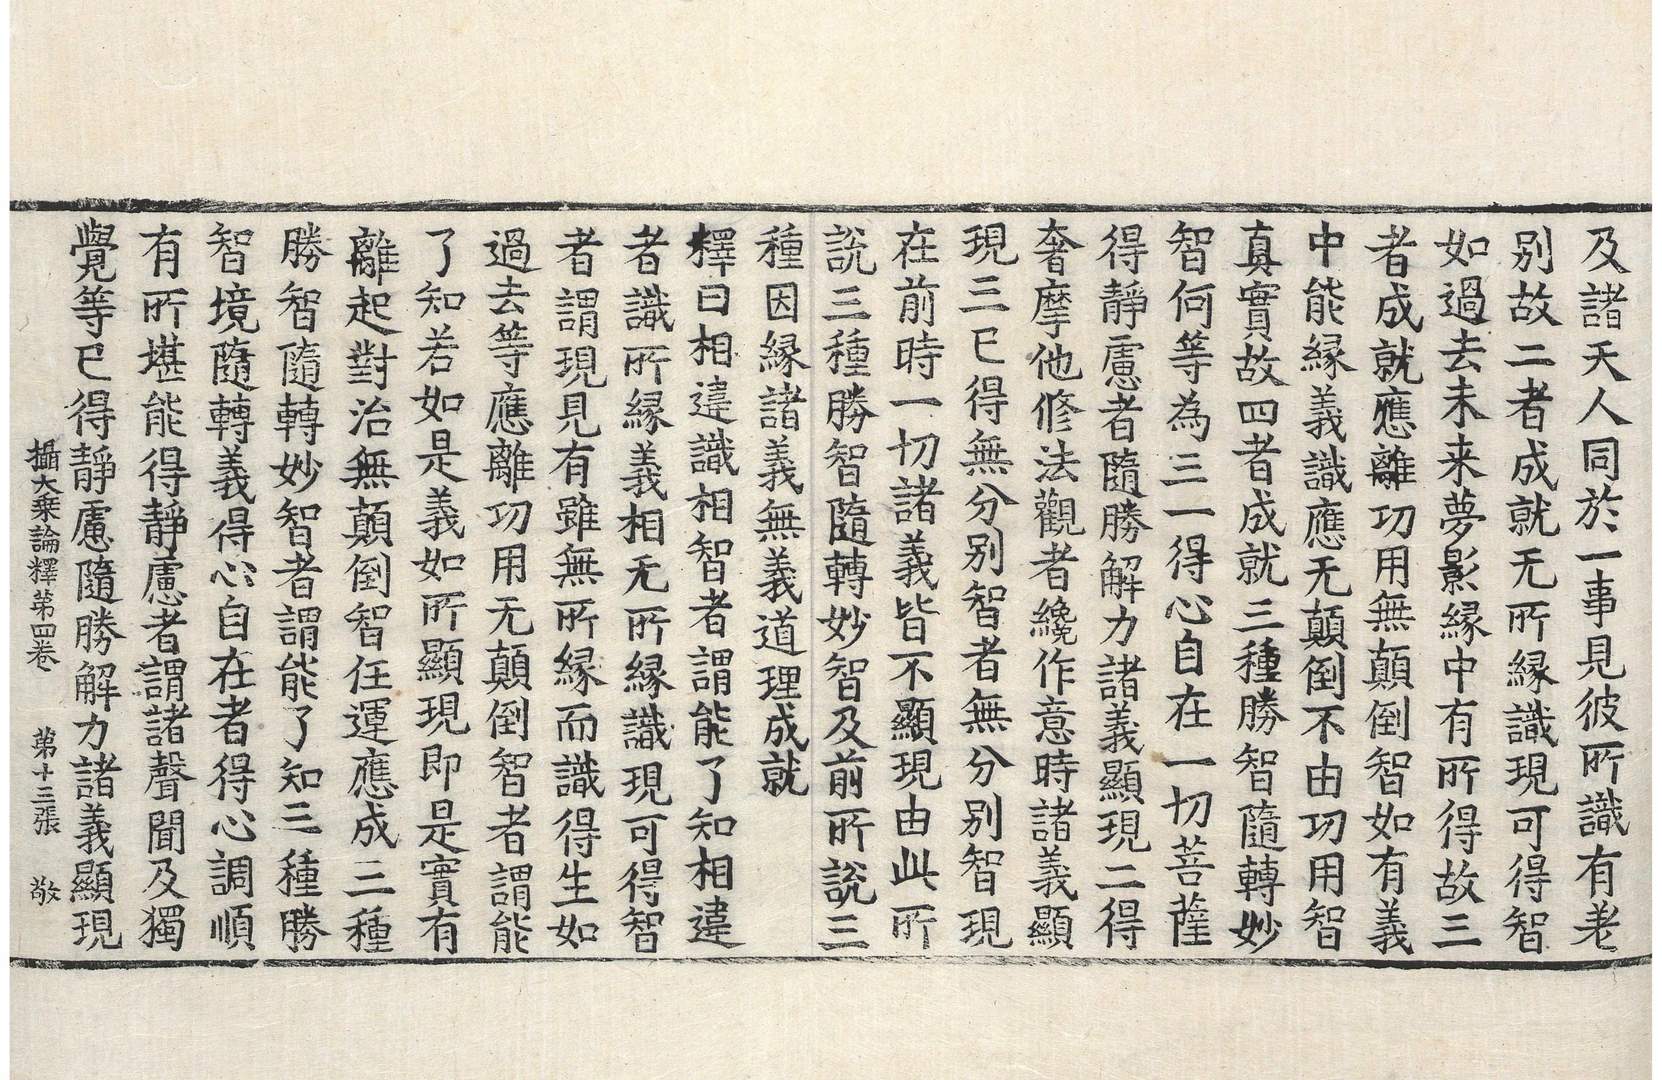 及諸天人同於一事見彼所識有差
別故二者成就无所縁識現可得智
如過去未来夢影縁中有所得故三
者成就應離功用無顛倒智如有義
中能縁義識應无顛倒不由功用智
真實故四者成就三種勝智隨轉妙
智何等為三一得心自在一切菩薩
得靜慮者隨勝解力諸義顯現二得
奢摩他修法觀者纔作意時諸義顯
現三已得無分別智者無分別智現
在前時一切諸義皆不顯現由此所
說三種勝智隨轉妙智及前所說三
種因縁諸義無義道理成就
釋曰相違識相智者謂能了知相違
者識所縁義相无所縁識現可得智
者謂現見有雖無所縁而識得生如
過去等應離功用无顛倒智者謂能
了知若如是義如所顯現即是實有
離起對治無顛倒智任運應成三種
勝智隨轉妙智者謂能了知三種勝
智境隨轉義得心自在者得心調順
有所堪能得靜慮者謂諸聲聞及獨
覺等已得靜慮隨勝解力諸義顯現
攝大乗論釋第四卷 第十三張 敬